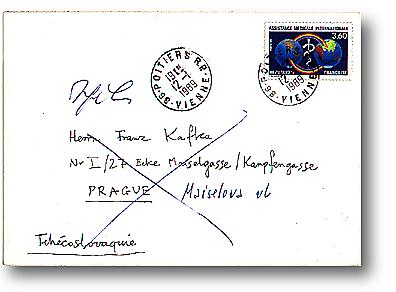 ASSISTANCE MEDICALE INTERNATIONALE
3,60
REPUBLIQUE FRANCAISE
86-POITIERS R.P.
12-1
1989
VIENNE
1989
86-VIENNE
Herrn Franz Kafka
Nr I/27 Ecke Maselgasse/Kampfengasse
PRAGUE Maiselova ul
Tchécoslovaquie